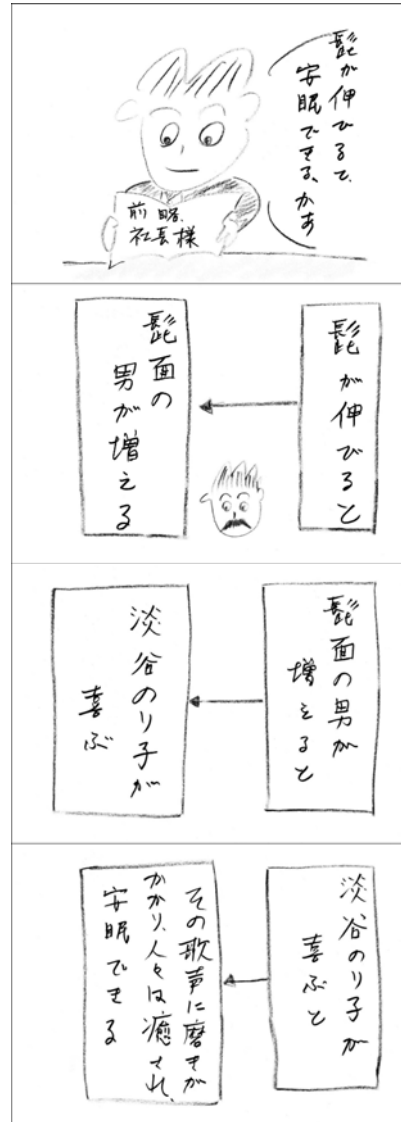 髭が伸びるで、
安眠できる、かあ
前略、
社長様
髭が伸びると
髭面の
男が増える
髭面の男が
増えると
淡谷のり子が
喜ぶ
淡谷のり子が
喜ぶと
その歌声に磨きが
かかり、人々は癒され、
安眠できる